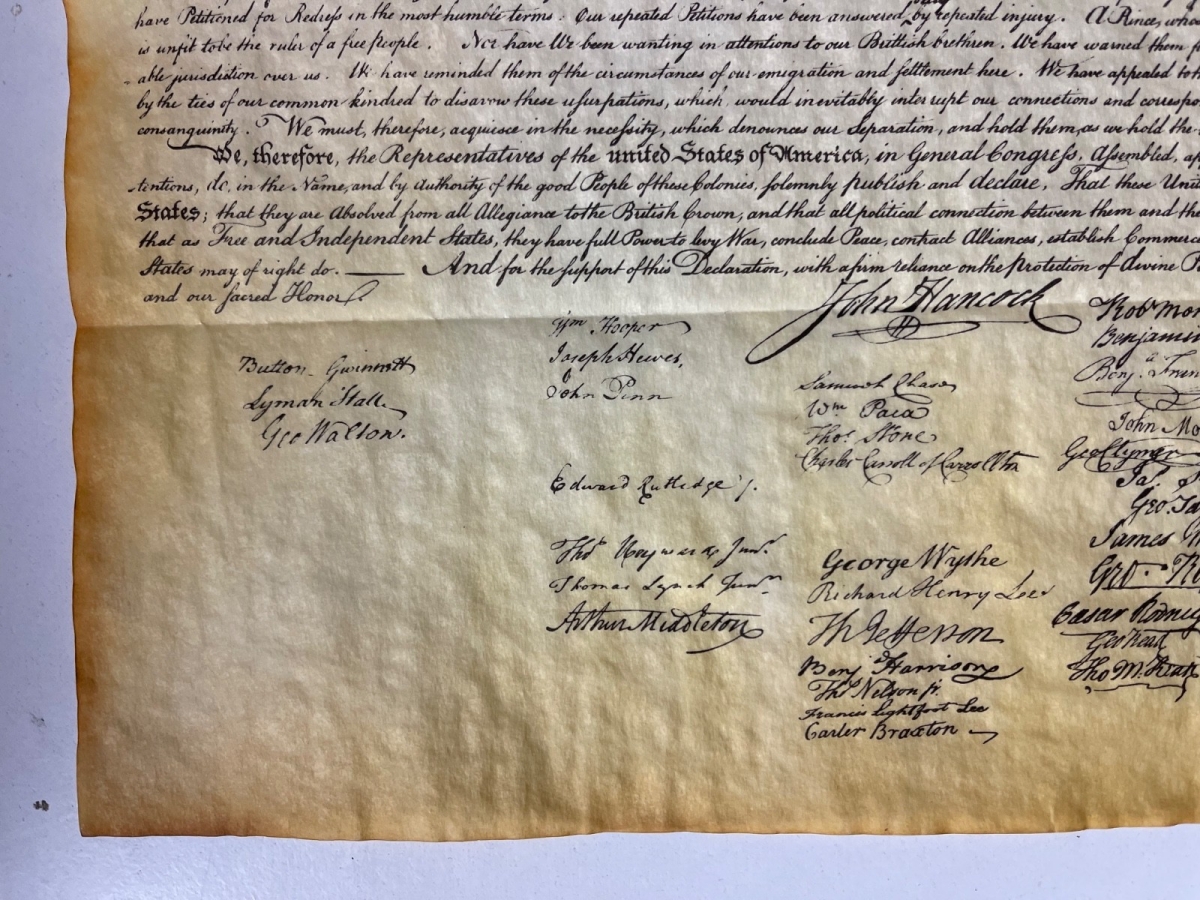 have Petitioned for Redress in the most humble terms: Our repeated Petitions have been answered by repeated injury. A Prince, who
is unfit to be the ruler of a free people. Nor have We been wanting in attentions to our Brittish brethren. We have warned them
able jurisdiction over us. We have reminded them of the circumstances of our emigration and settlement here. We have appealed to
by the ties of our common kindred to disavow these usurpations, which, would inevitably interrupt our connections and correspo
consanguinity. We must, therefore, acquiesce in the necessity, which denounces our Separation, and hold them, as we hold the
We, therefore, the Representatives of the united States of America, in General Congress, Assembled, ap
tentions, do, in the Name, and by Authority of the good People of these Colonies, solemnly publish and declare, That these Unit
States; that they are Absolved from all Allegiance to the British Crown, and that all political connection between them and the
that as Free and Independent States, they have full Power to levy War, conclude Peace, contract Alliances, establish Commerce
States may of right do. — And for the support of this Declaration, with a firm reliance on the Protection of divine P
and our sacred Honor
Button Gwinnett
Lyman Hall
Geo Walton.
Wm Hooper
Joseph Hewes,
John Penn
Edward Rutledge /.
Thos Heyward Junr.
Thomas Lynch Junr.
Arthur Middleton
John Hancock
Samuel Chase
Wm Paca
Thos Stone
Charles Carroll of Carrollton
George Wythe
Richard Henry Lee
Th Jefferson
Benj Harrison
Thos Nelson jr.
Francis Lightfoot Lee
Carter Braxton
Robt Mor
Benjamin
Benj. Fran
John Mo
Geo Clymer
Jas. S
Geo. Ta
James W
Geo. Ro
Caesar Rodney
Geo Read
Tho M:Kean